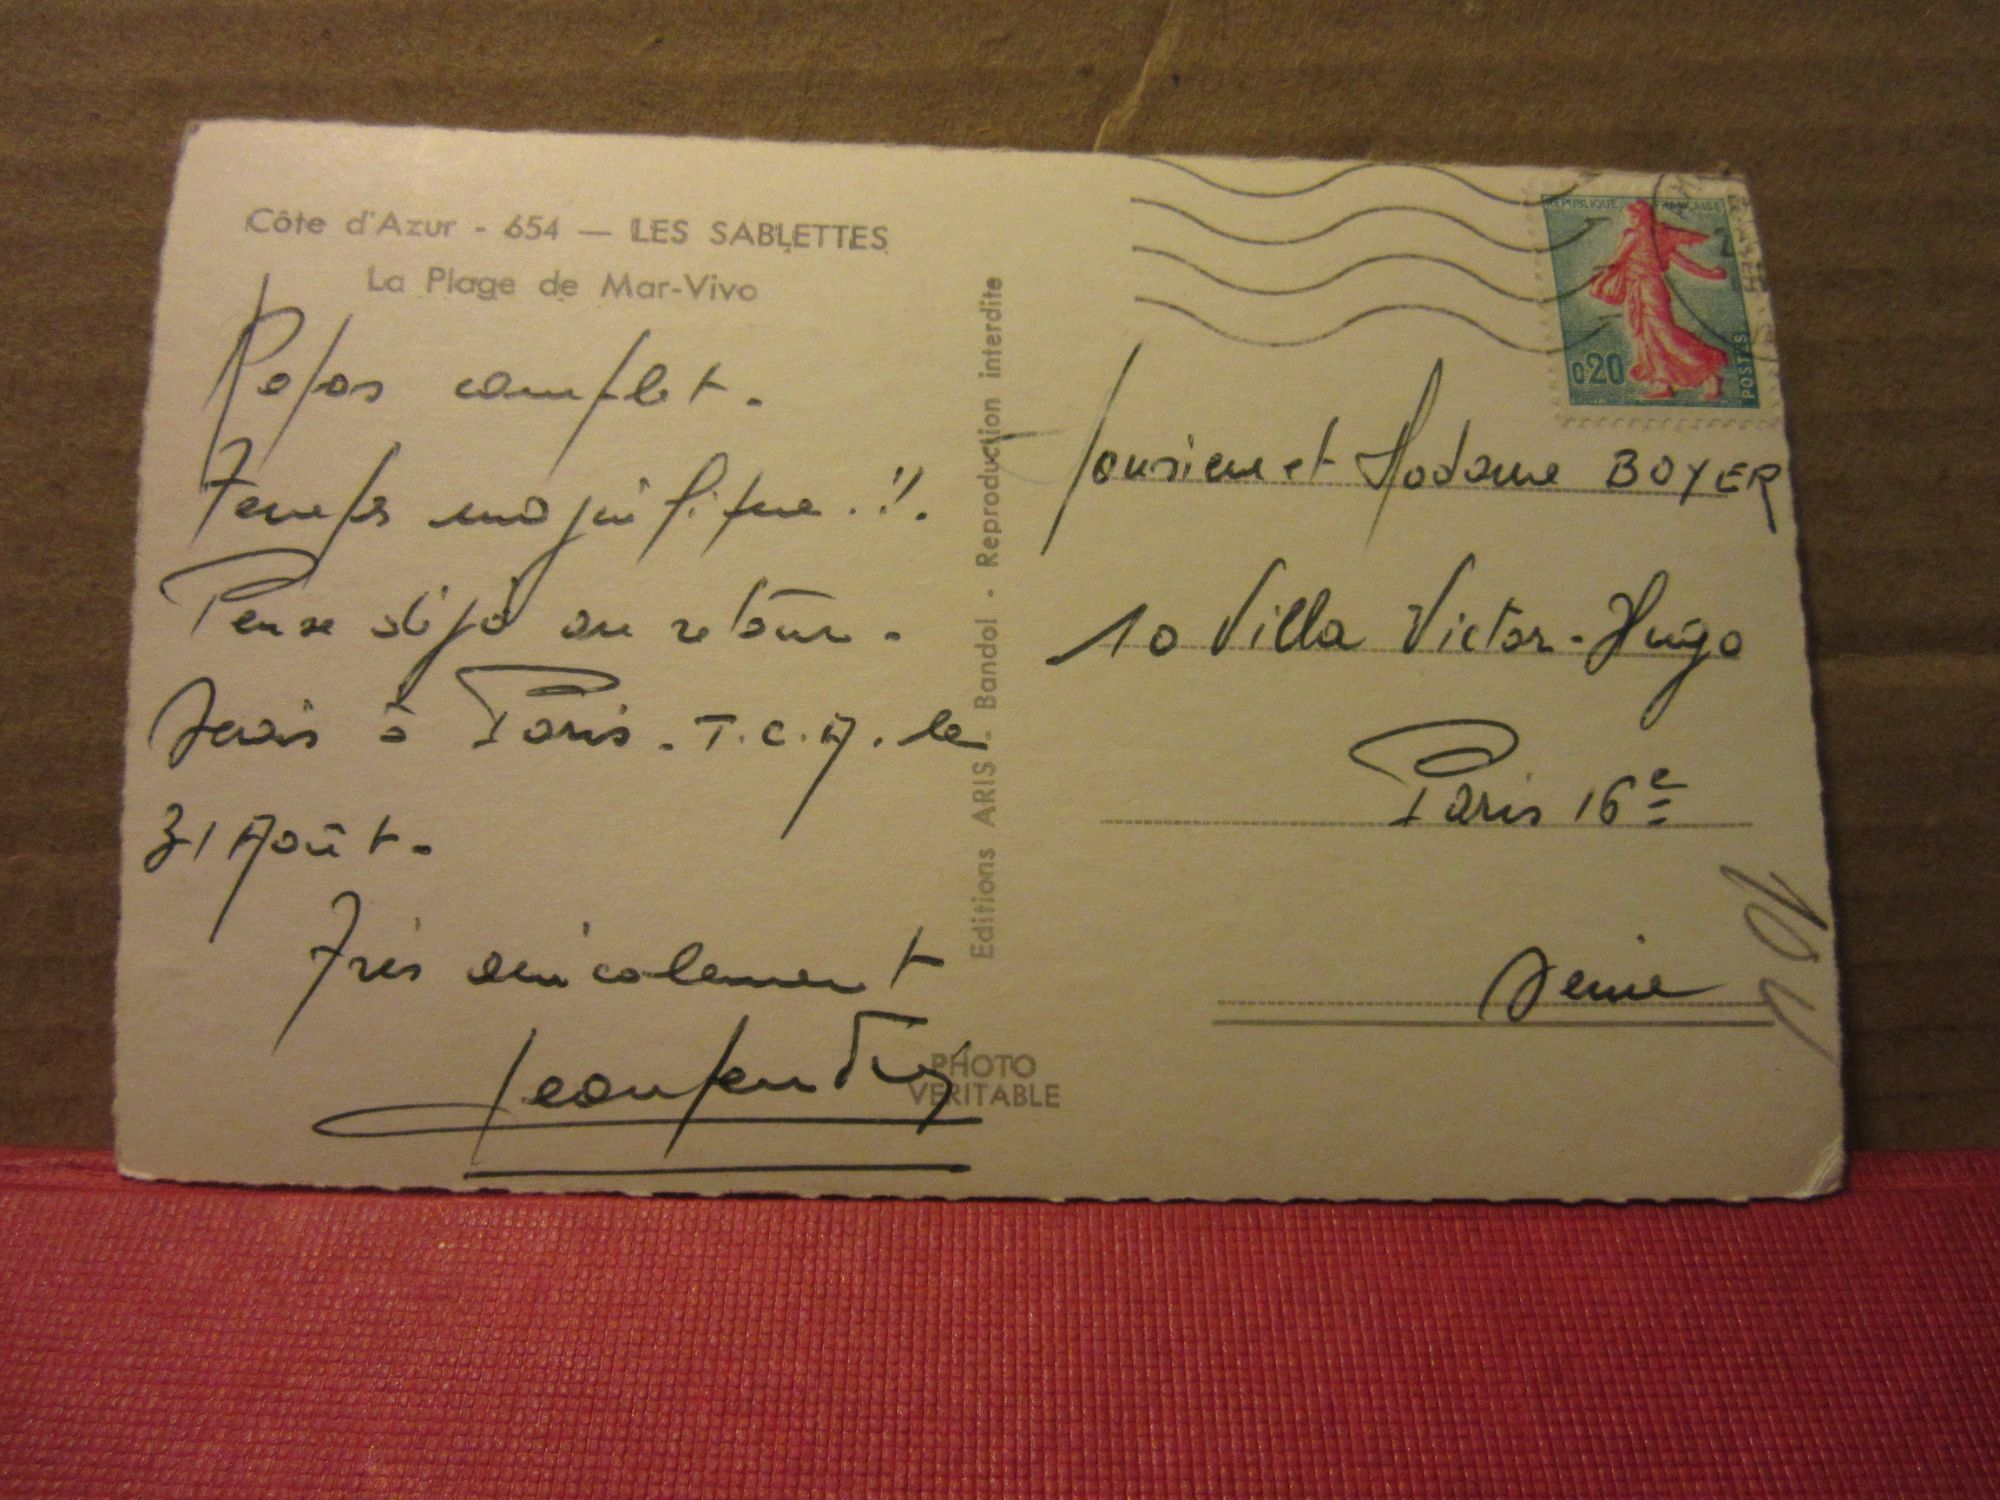 Côte d'Azur - 654 — LES SABLETTES
La Plage de Mar-Vivo
Repos complet.
Temps magnifique.!!.
Pense déjà au retour.
Serais à Paris. T.C.A. le
31 Août.
Très amicalement
Editions ARIS - Bandol - Reproduction interdite
PHOTO
VERITABLE
REPUBLIQUE FRANCAISE
0,20
POSTES
Monsieur et Madame BOYER
10 Villa Victor-Hugo
Paris 16e
Seine